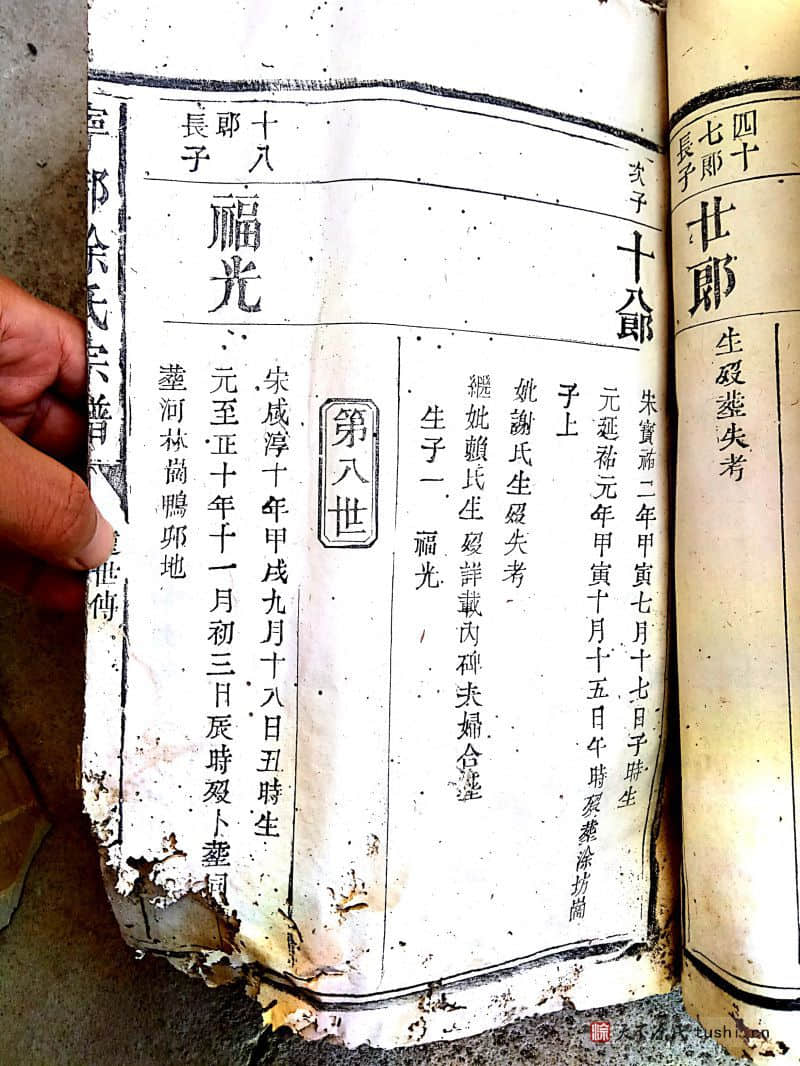 四十
七郎
長子
廿郎
生歿塟失考
次子
十八郎
宋寳祐二年甲寅七月十七日子時生
元延祐元年甲寅十月十五日午時歿塟涂坊崗
子上
妣謝氏生歿失考
繼妣賴氏生歿詳載內碑夫婦合塟
生子一 福光
第八世
十八
郎
長子
福光
宋咸淳十年甲戌九月十八日丑時生
元至正十年十一月初三日辰時歿卜塟同
塟河林崗鴨卵地
寧都涂氏宗譜
世傳
tushi.cn